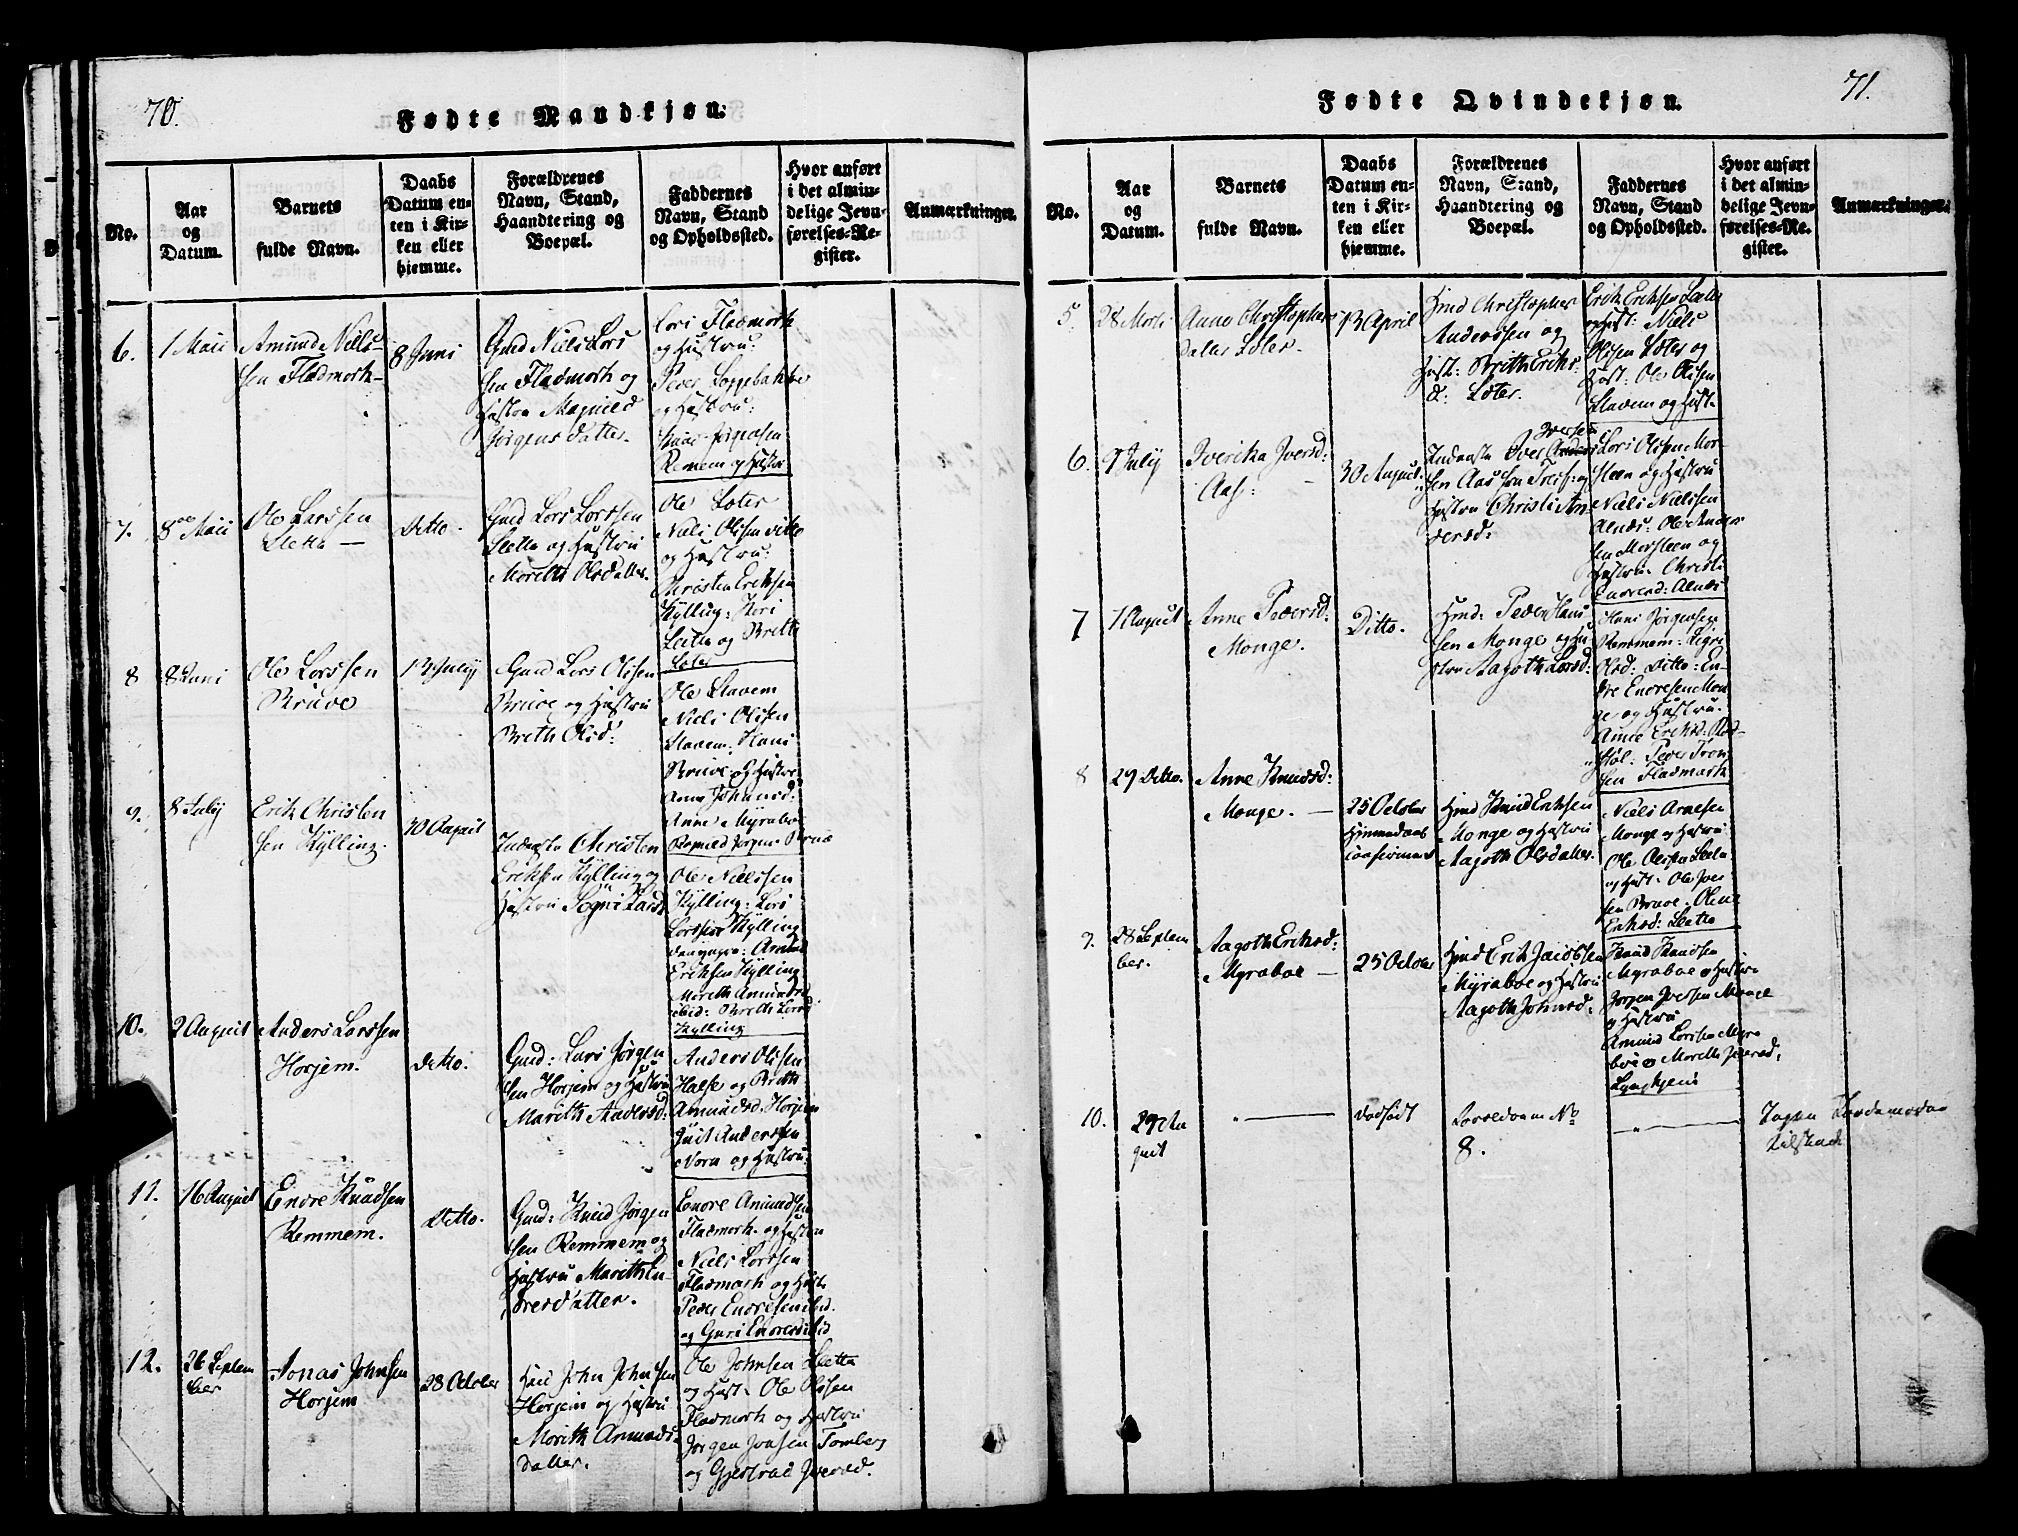 70.
Fødte Mandkjøn.
No.
Aar
og
Datum.
Barnets
fulde Navn.
Daabs
Datum en-
ten i Kir-
ken eller
hjemme.
Forældrenes
Navn, Stand,
Haandtering og
Boepæl.
Faddernes
Navn, Stand
og Opholdssted.
Hvor anført
i det almin-
delige Jevn-
førelses-Re-
gister.
Anmærkninger.
6.
1 Maii
Amund Niels-
sen Fladmark
8 Juni
Gmd Niels Lars
sen Fladmark og
Hustru Magnild
Jørgensdatter.
Lars Fladmark
og Hustru:
Peder
og Hustru:
Jørgensen
Remem og Hustru
7.
8 Maii
Ole Larssen
Sletta
Ditto.
Gmd Lars Larssen
Sletta og Hustru
Marethe Olsdatter.
Ole Sæter
Niels Olssen ditto
og Hustru:
Christen Eriksen
Kylling: Kari
Sletta og Brette
Sæter
8
8 Juni
Ole Larssen
Bruve
13 July
Gmd Lars Olssen
Bruve og Hustru
Breth Olsd:
Ole Stavem
Niels Olssen
Stavem: Hans
Bruve og Hustru
Anne Johnsd:
Anne Myraboe
Ragnild Jørgens Bruve
9.
8 July
Erik Christen
sen Kylling.
30 August
Christen
Eriksen Kylling og
Hustru Signe Larsd
Ole Nielssen
Kylling: Lars
Larssen Kylling
den yngre: Amund
Eriksen Kylling
Mareth Amundsd
ibid: Breth Larsd
Kylling
10.
2 August
Anders Larssen
Horjem.
ditto.
Gmd: Lars Jørgen
sen Horjem og Hustru
Marith Andersd:
Anders Olssen
Halse og Brith
Amundsd. Horjem
Anderssen
Nora og Hustru:
11.
16 August
Endre Knudsen
Remmem.
Ditto.
Gmd: Knud Jørgen
sen Remmem og
Hustru Marith En-
dresdatter.
Endre Amundsen
Fladmark og Hustru
Niels Larssen
Fladmark og Hustr
Peder Endresen ibid.
og Guri Endresd ibid
12.
26 Septem
ber
Jonas Johnsen
Horjem
28 October
John Johnsen
Horjem og Hustru
Marith Amunds-
datter.
Ole Johnsen Sletta
og Hust. Ole Olssen
Fladmark og Hustru
Jørgen Jonsen Tomberg
og Gjertrud Iversd.
71.
Fødte Qvindekjøn.
No.
Aar
og
Datum.
Barnets
fulde Navn.
Daabs
Datum en-
ten i Kir-
ken eller
hjemme.
Forældrenes
Navn, Stand,
Haandtering og
Boepæl.
Faddernes
Navn, Stand
og Opholdssted.
Hvor anført
i det almin-
delige Jevn-
førelses-Re-
gister.
Anmærkninger.
5.
28 Marti
Anne Christophers
datter Sæter.
13 April
Christopher
Anderssen og
Hust: Brith Eriks
d: Sæter.
Erik Eriksen Sæter
og Hust: Niels
Olssen Sæter og
Hust: Ole Olssen
Stavem og Hust.
6.
9 July
Iverika Iversd:
Aas:
30 August:
Iversen
Inderste Iver Anders
sen Aas og
Hustru Christi An
dersd:
Lars Olssen Mar-
steen og Hustru
Niels Nielssen
Alnæs: Ole Anders
sen Marsteen og
Hustru. Christi
Alnæs
7
1 August
Anne Pedersd:
Monge.
Ditto.
Hmd: Peder Hans
sen Monge og Hu
stru Aagoth Larsd:
Hans Jørgensen
Remmem: Sigri
Olsd: ditto: En-
dre Endresen Mon
ge og Hustru.
Anne Eriksd:
Peder Iver
sen Fladmark
8
29 Ditto.
Anne Knudsd:
Monge.
25 October
Hjemmedaab
confirmeret
Hmd Knud Eriksen
Monge og Hustru
Aagoth Olsdatter.
Niels Arnesen
Monge og Hustru
Ole Olssen Sletta
og Hust. Ole Iver
sen Bruve. Oline
Eriksd: Sletta
9.
28 Septem
ber.
Aagoth Eriksd:
Myraboe
25 October
Hmd Erik Jacobsen
Myraboe og Hustru
Aagoth Johnsd:
Knud Knudsen
Myraboe og Hustru
Jørgen Iversen Monge
og Hustru
Amund Larssen Myra
boe og Marith Iversd:
Lyngheim
10.
29 Au
gust
"
dødfødt
Forældrene No
8.
"
Ingen Jordemoder
tilstede